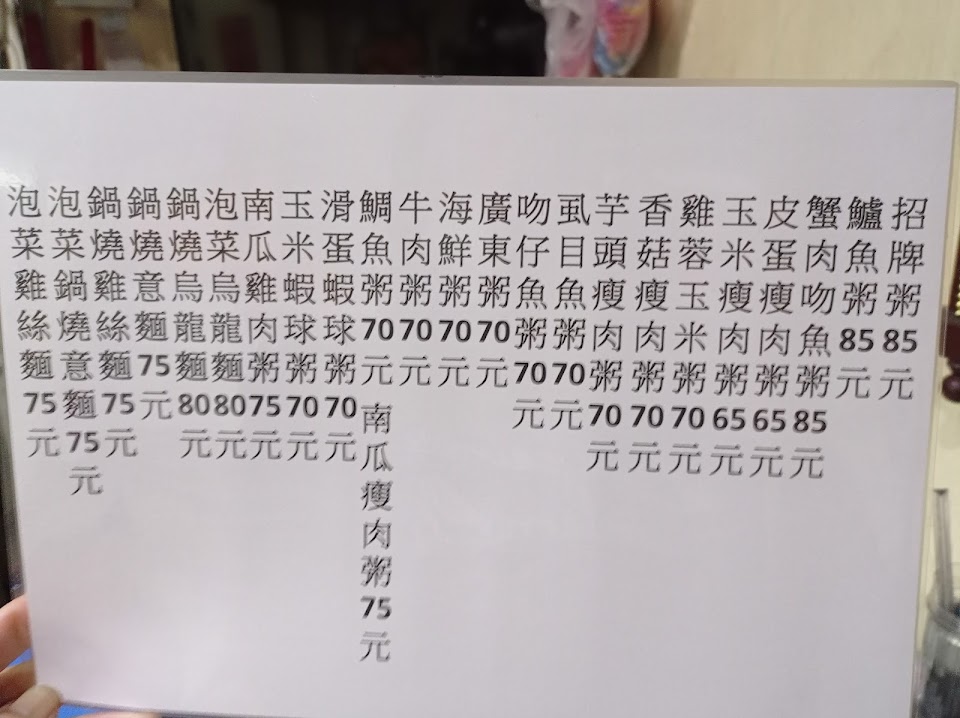 招牌粥85元
鱸魚粥85元
蟹肉吻魚粥85元
皮蛋瘦肉粥65元
玉米瘦肉粥65元
雞蓉玉米粥70元
香菇瘦肉粥70元
芋頭瘦肉粥70元
虱目魚粥70元
吻仔魚粥70元
廣東粥70元
海鮮粥70元
牛肉粥70元
鯛魚粥70元
南瓜瘦肉粥75元
滑蛋蝦球粥70元
玉米蝦球粥70元
南瓜雞肉粥75元
泡菜烏龍麵80元
鍋燒烏龍麵80元
鍋燒意麵75元
鍋燒雞絲麵75元
泡菜鍋燒意麵75元
泡菜雞絲麵75元